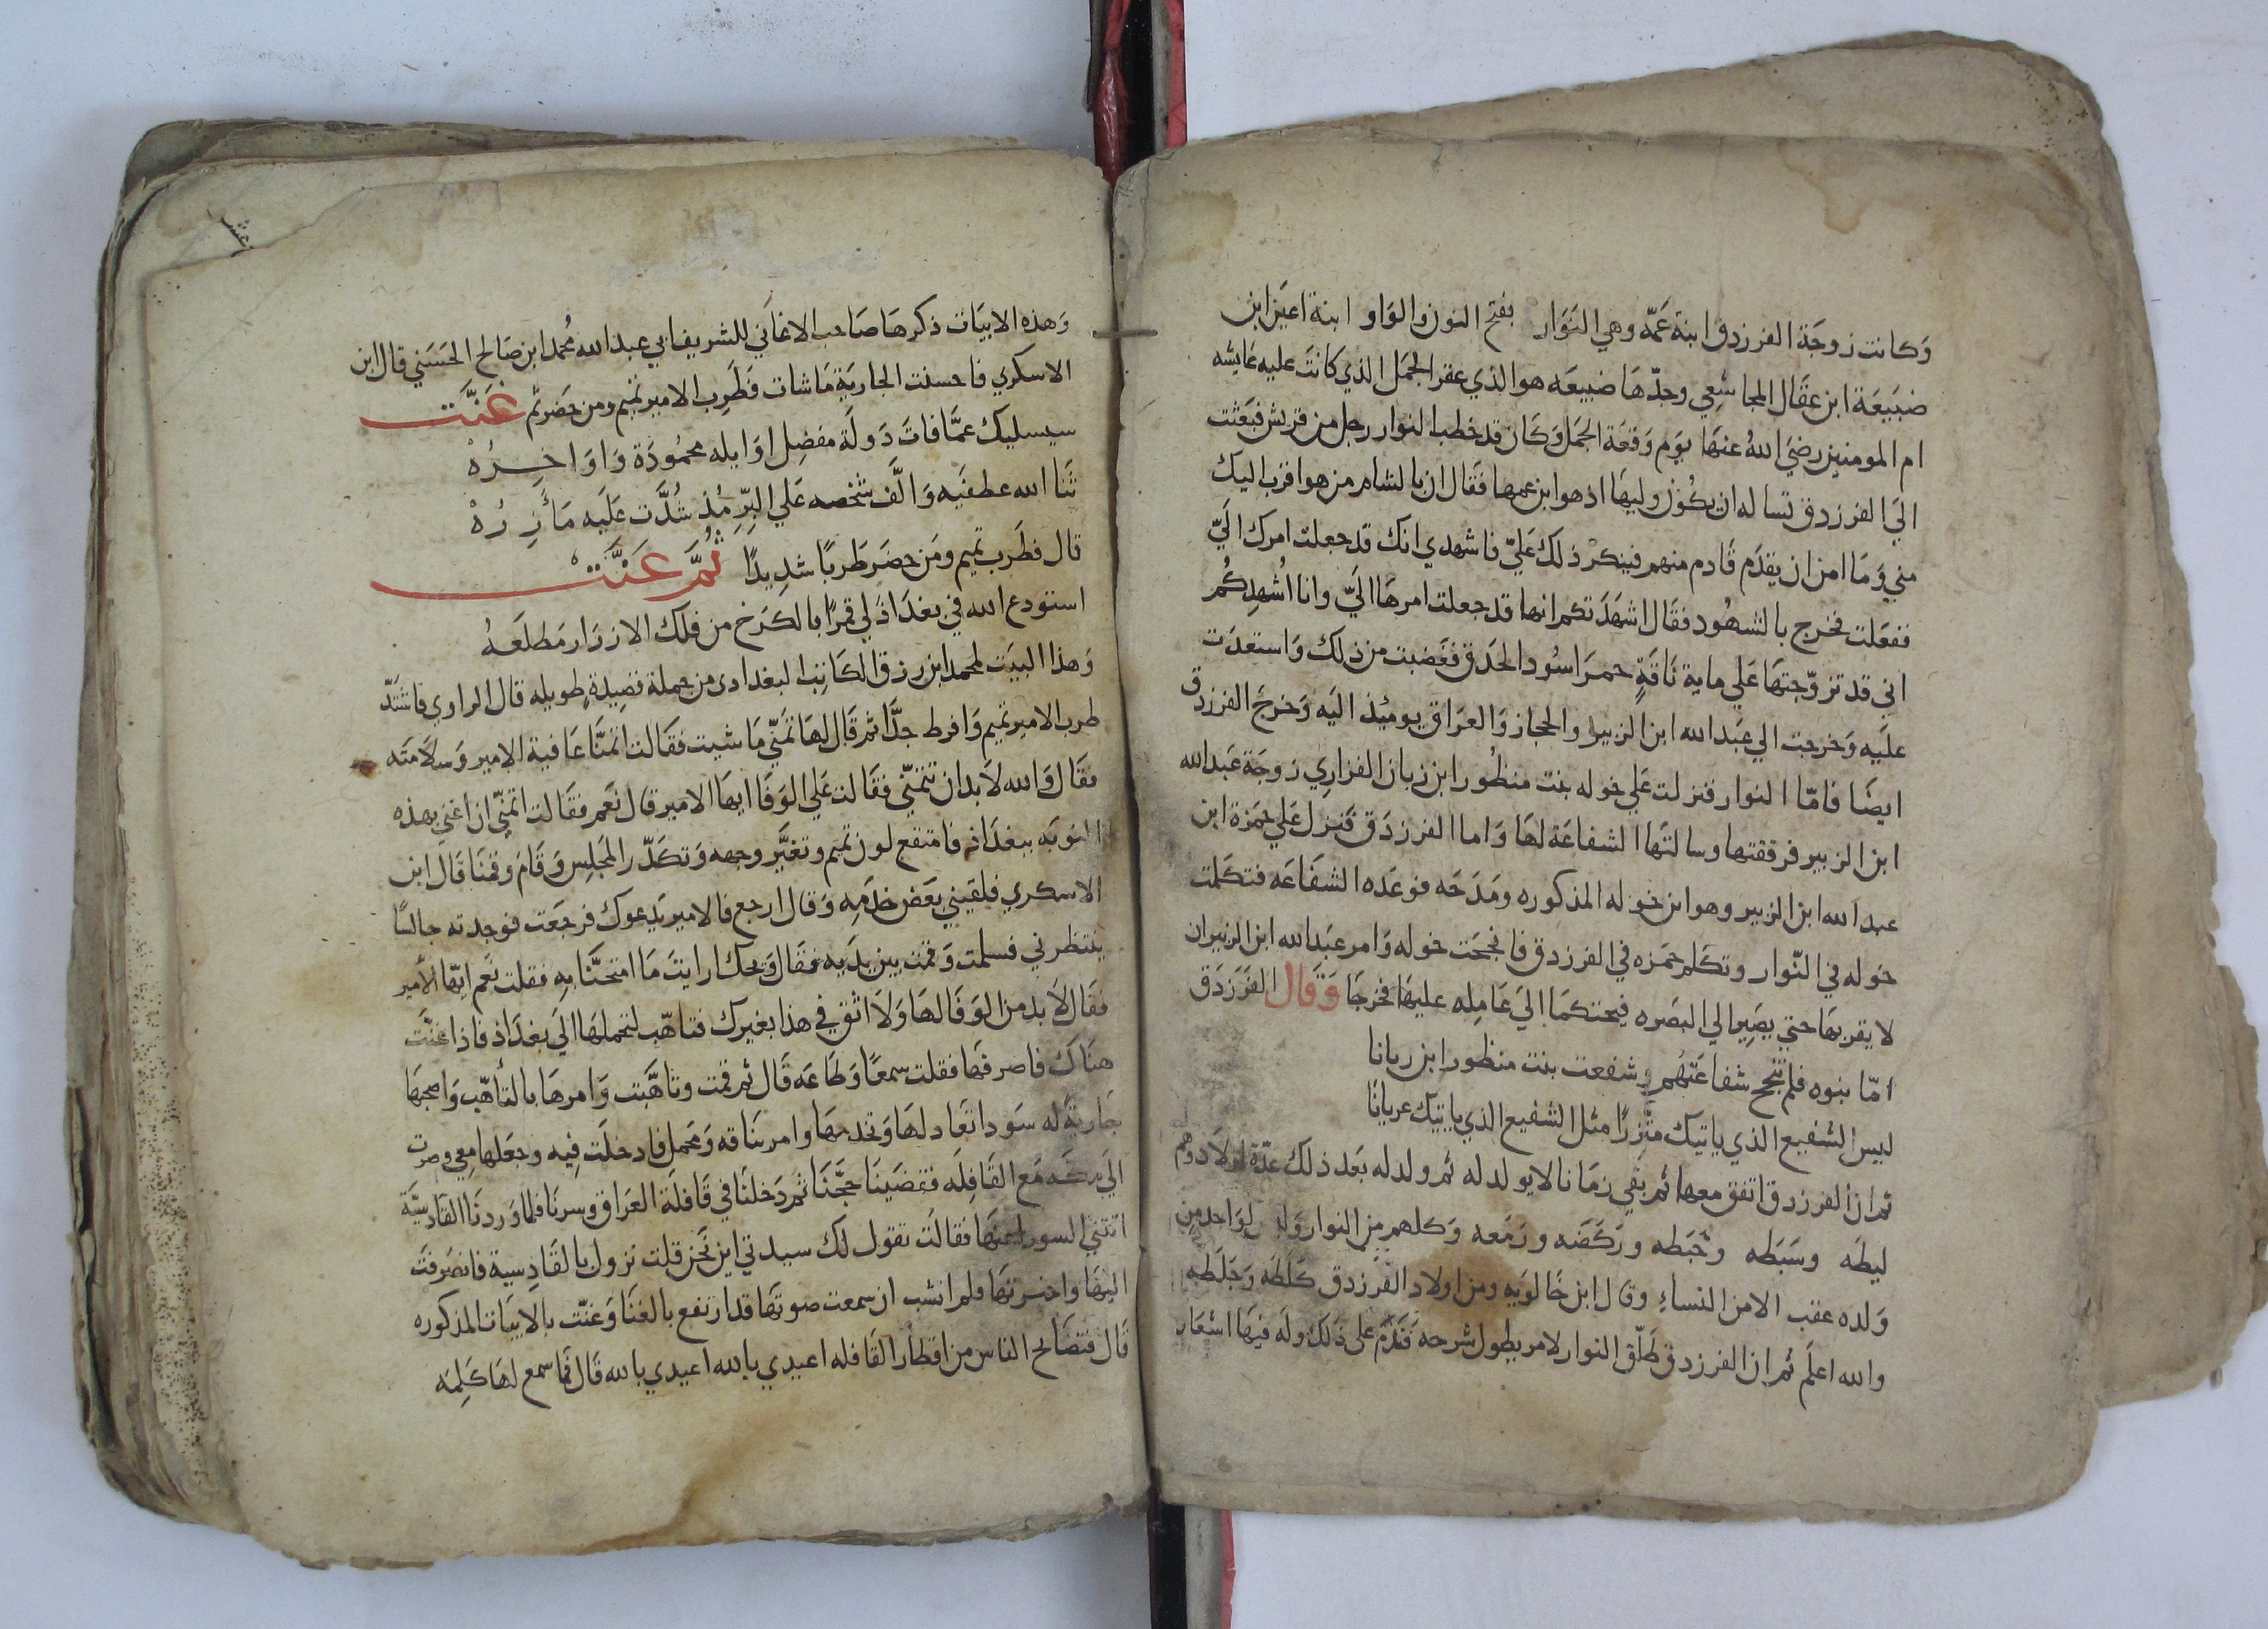 وَكانت زوجَة الفرزدق ابنة عَمّه وهي النَوَار بفتح النون والوَاو ابنة اعيَن ابن
ضبَيعَة ابن عقَال المجاشِعي وجدّهَا ضبيعَه هو الذي عقر الجمَل الذي كانتَ عليه عَايشه
ام المومنين رضيَ اللهُ عنهَا يوَم وَقعَة الجمَل وَكَان قد خطب النوار رجل من قريش فبَعَثت
اليَ الفرزدق تساله ان يكُون وليهَا اذ هو ابن عمها فقَال ان بالشام من هو اقرب اليك
مني وَمَا امن ان يقدَم قَادم منهم فينكر ذلك عَليّ فاشهدي انك قد جعلت امرك اليَّ
ففعَلت فخرج بالشهُود فقَال اشهَدَتكم انها قد جعلت امرهَا اليَّ وانا اُشهِدكُم
اني قد تزوّجتهَا عَلي ماية نَاقَةٍ حمرَا سُود الحَدق فغَضبت من ذلك وَاستعدَت
علَيه وَخرجت الي عبَد الله ابن الزبير والحجاز وَالعرَاق يومئذ اليَه وَخرجَ الفرزدق
ايضًا فامّا النوار فنزلت عَلي خوله بنت منظُور ابن زبان الفزاري زوجَة عَبد الله
ابن الزبير فرققتها وسالتهَا الشفاعَة لهَا وَاما الفرزدَق فَنزل عَلي حمَزة ابن
عبد الله ابن الزبير وهو ابن خوله المذكوره ومَدَحَه فوعَده الشفَاعَه فتكَلمت
خوله في النّوار وتكَلم حمَزه في الفرزدق فانجحَت خوله وَامر عبَد الله ابن الزبير ان
لا يقربهَا حتي يصَيرا الي البصَره فيحتكمَا اليَ عَامله عليهَا فخرجَا وَقَال الفَرَزدَق
امّا بنوه فلم تنجح شفاعَتهُم وشفعت بنت منظور ابن زبانا
ليس الشفيع الذي ياتيك متّزرًا مثل الشفيع الذي ياتيك عريانًا
ثم ان الفرزدق اتفق معها ثم بقي زمَانا لا يولد له ثم ولد له بَعد ذلك عدّة اولاد وهم
ليطَه وسَبَطه وخَبَطه ورَكَضَه وزَمَعه وَكلهم من النوار وَليس لوَاحد من
وَلده عقب الا من النساءِ وقال ابن خَالوَيه ومن اولاد الفَرزدق كَلَطَه وَجَلَطه
والله اعلَم ثم ان الفرزدق طَلّق النوار لامر يطول شرحه فَندَم على ذلك وله فيهَا اشعَار
وَهذه الابيَات ذكرهَا صَاحب الاغَاني للشريف ابي عبد الله مُحمد ابن صَالح الحَسَني قال ابن
الاسكري فاحسنت الجاريَة مَا شات فَطَرب الامير تميم ومن حَضر ثم غَنَّت
سيسليك عمَّا فاتَ دَولَة مفضِل اوَايله محمُودَة وَاوَاخِرُهْ
ثنَا الله عطفَيه وَالَّف شخصه عَلي البِّرِ مُذ شُدَّت عَلَيه مَأَزِرُهْ
قال فطَرب تميم ومَن حضَر طَربًا شديدًا ثُمَّ غَنَّت
استودع الله في بغدَاذ لي قمرًا بالكرَخ من فلك الازرَار مَطلَعهُ
وَهذا البيَت لمحمد ابن رزق الكَاتِب البغدادى من جملة قصيدةٍ طويله قال الراوي فاشتَدّ
طرب الامير تميم وَافرط جدًّا ثم قَال لهَا تمنّي مَا شيت فقَالت اتمنَّا عَافية الامير وَسلَامَته
فقَال وَالله لَا بد ان تتمنّي فقَالت عَلي الوَفَا ايهَا الامير قال نَعَم فقَالت اتمنّي ان اغني بهذه
النوبَه ببغدَاذ فامتقع لون تميم وتغيَّر وجهه وَتكَدّر المجَلِس وَقَامَ وقمنَا قَال ابن
الاسكري فلقيَني بَعَض خَدَمِه وَقال ارجع فالامير يَدعوك فرجَعت فوجدته جالسًا
ينتظرني فسلمت وَقمت بين يدَيه فقَال وَيحك ارايتَ مَا امتحنَّا به فقلت نَعَم ايّها الأمير
فقَال لَا بد من الوَفَا لهَا وَلَا اثق في هذا بغيرك فتاهّب لتحملهَا اليَ بغدَاذ فاذا غنَّت
هنَاك فاصرفهَا فقلت سمعًا وَطَاعَه قَال ثم قمت وتاهَّبت وَامرهَا بالتأهّب وَاصحبهَا
بجَاريَة له سَودا تعَادلهَا وَتخدمهَا وامر بنَاقه وَمحمل فادخلَت فيه وجعَلها معِي وصرت
اليَ مكَه مَع القَافِلَه فقضَينَا حجَّنَا ثم دَخلنَا في قَافلَة العرَاق وسرنَا فلما وَردنَا القَادسَيَّة
اتتني السودا عنهَا فقالَت تقول لك سيدتي اين نَحن قلت نزول بالقَادِسية فانصَرفَت
اليهَا واخبرتهَا فلم انشب ان سمعت صوتهَا قد ارتفع بالغنَا وَغنّت بالابيَات المذكوره
قَال فتصَالح الناس من اقطَار القَافله اعيدي بالله اعيدي بالله قَال فمَا سمع لهَا كَلِمَه